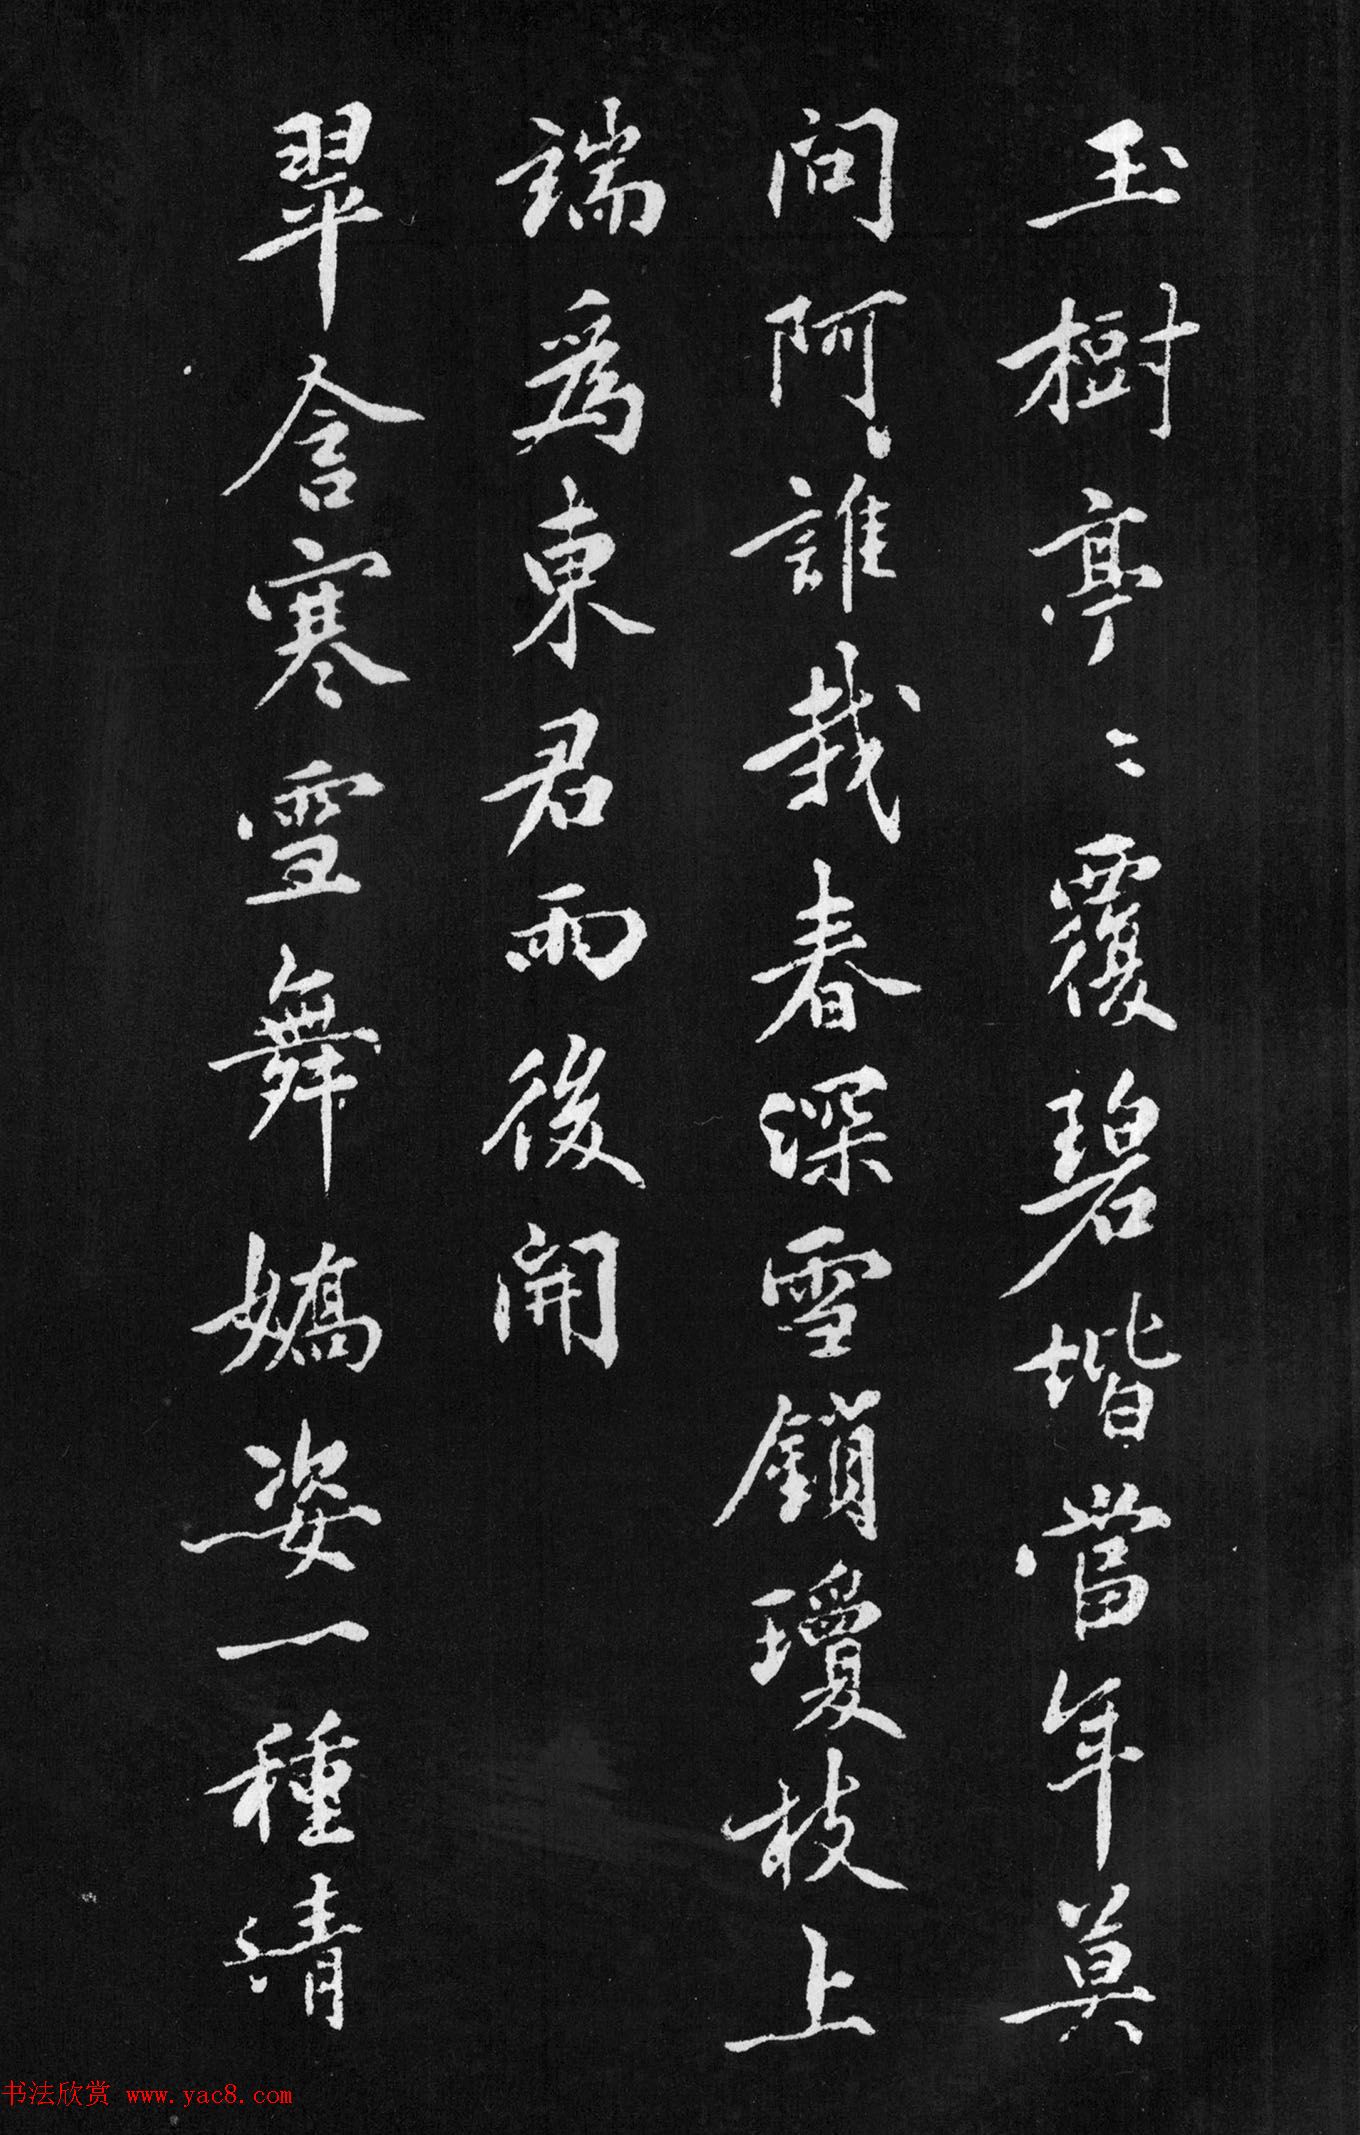 玉樹亭〻覆碧堦當年莫
問阿誰栽春深雪鎖瓊枝上
端為東君雨後開
翠含寒雪舞嬌姿一種清
书法欣赏 www.yac8.com